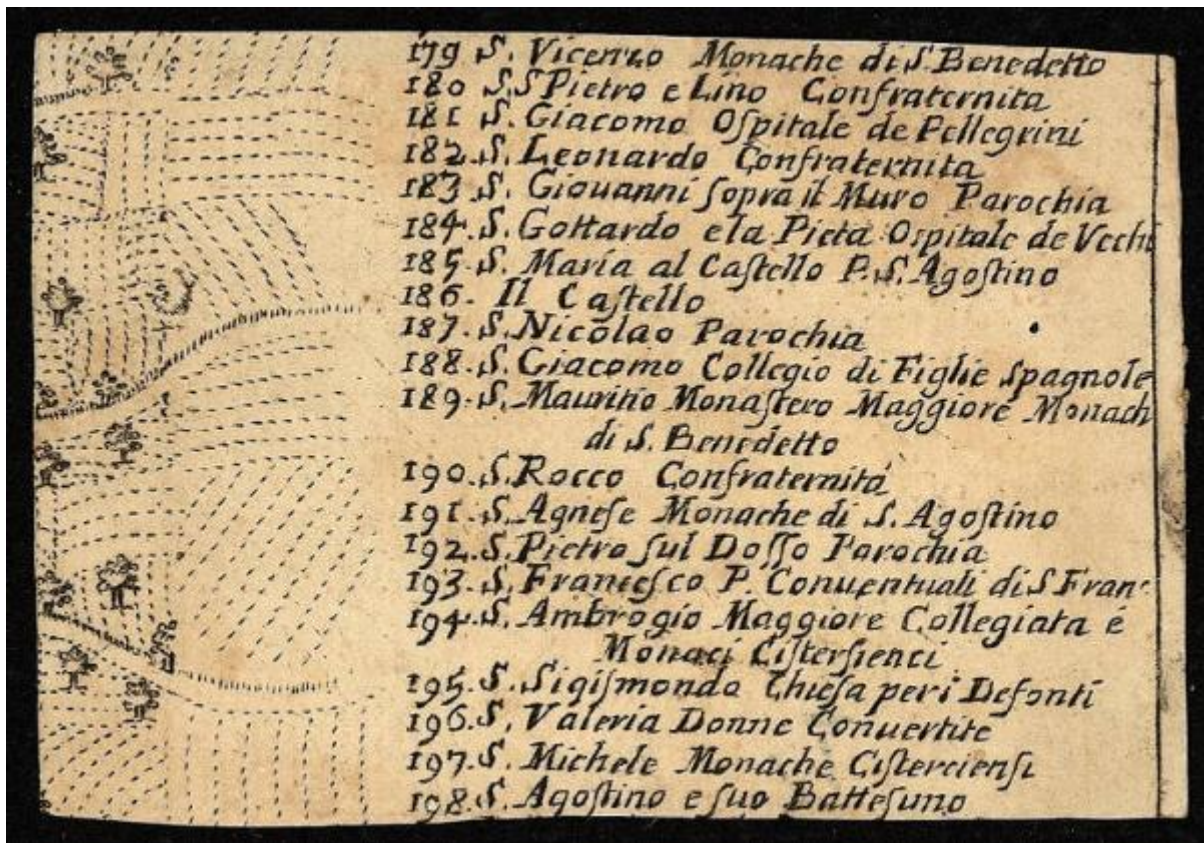 179 S. Vicenzo Monache di S. Benedetto
180 S.S Pietro e Lino Confraternita
181 S. Giacomo Oſpitale de Pellegrini
182. S. Leonardo Confraternita
183 S. Giouanni ſopra il Muro Parochia
184. S. Gottardo e la Pieta Ospitale de Vechi
185. S. Maria al Caſtello P. S. Agoſtino
186. Il Caſtello
187. S. Nicolao Parochia
188. S. Giacomo Collegio di Figlie Spagnole
189. S. Mauritio Monaſtero Maggiore Monach
di S. Benedetto
190. S. Rocco Confraternitá
191. S. Agneſe Monache di S. Agoſtino
192. S. Pietro ſul Doſſo Parochia
193. S. Franceſco P. Conuentuali di S Fran.
194. S. Ambrogio Maggiore Collegiata é
Monaci Ciſterſienci
195. S. Sigiſmondo Chieſa per i Defonti
196. S. Valeria Donne Conuertite
197. S. Michele Monache Ciſtercienſi
198. S. Agoſtino e ſuo Batteſuno